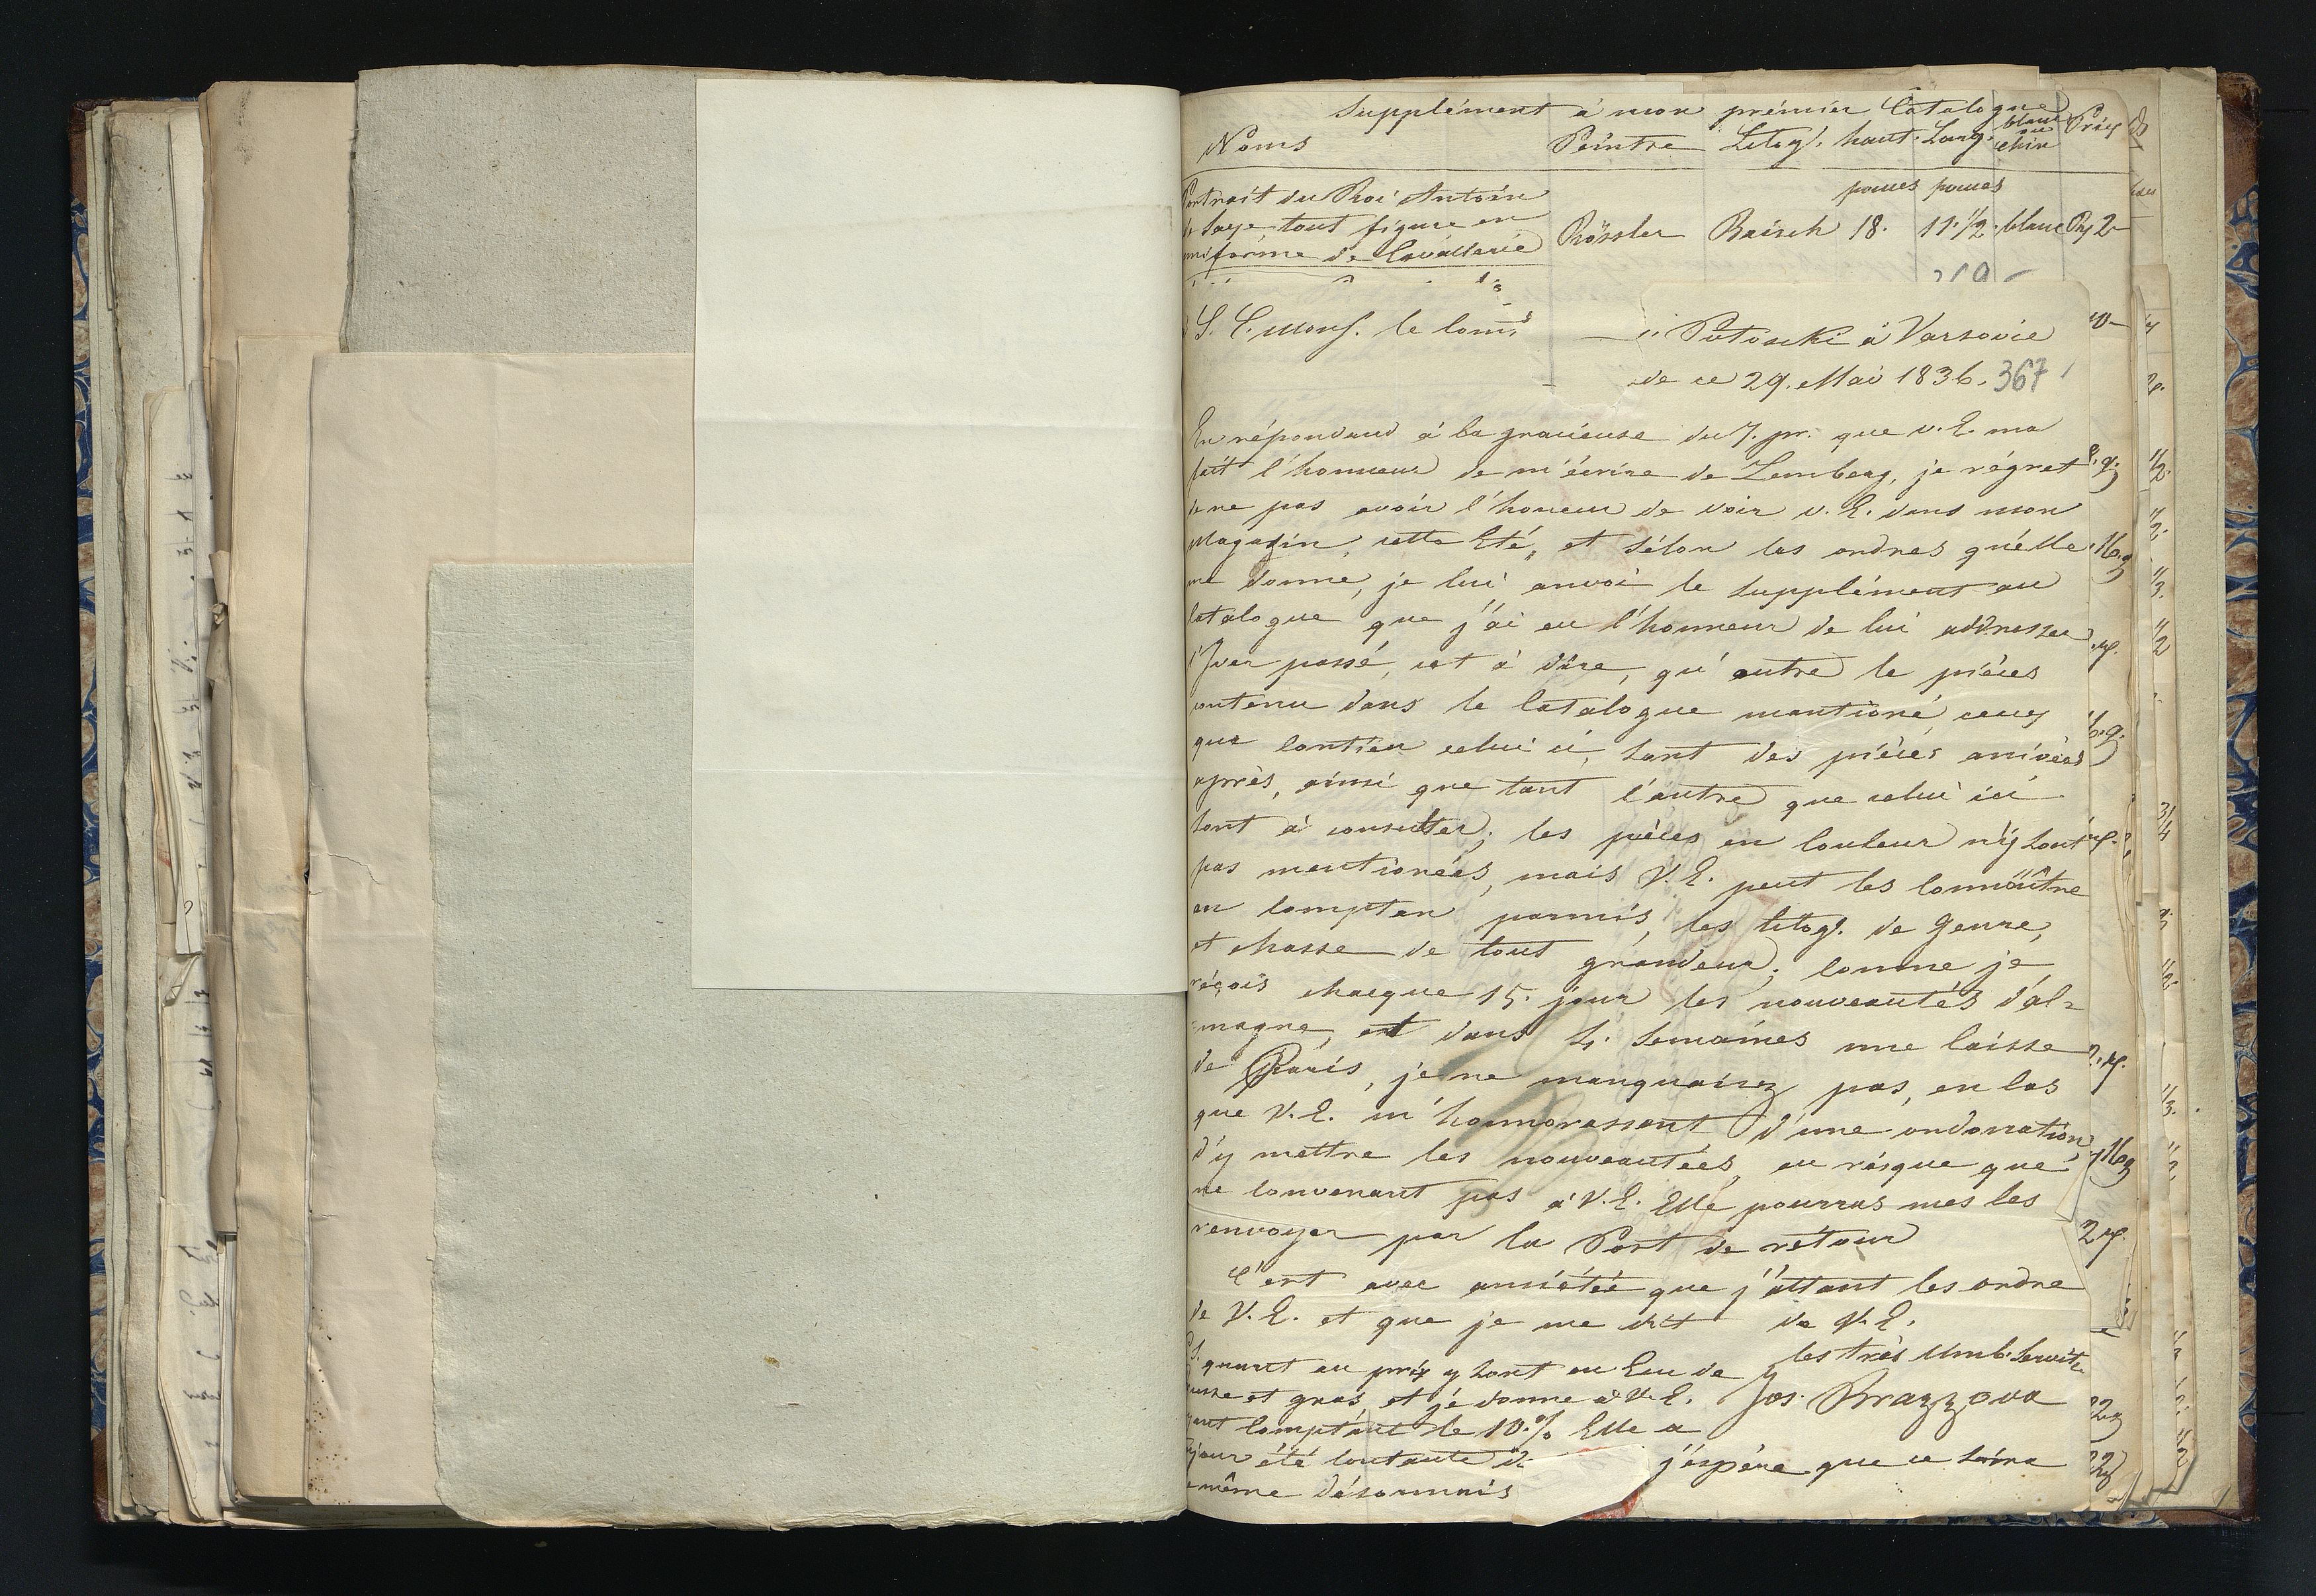 Supplément à mon prémier Catalogue
Noms Peintre Litog. haut. Larg. blanc ou chin Prix
pouces pouces
Portrait du Roi Antoin
de Saxe, tout figure en
uniforme de Cavallerie Rössler Baisch 18. 11. 1/2. blanc 2
S. E. Mons. le Com
Potoscki à Varsovie
de ce 29. Mai 1836. 367
En répondand á la gracieuse du 7. pr. que v. E. ma
fait l'honneur de m'écrire de Lemberg, je régret
de ne pas avoir l'honeur de voir v. E. dans mon
Magazin, cette Eté, et sélon les ordres qu'elle
me donne, je lui anvoi le Supplément au
Catalogue que j'ai eu l'honneur de lui addresser
l'Iver passé, cet á dire, qu'outre le piéces
contenu dans le Catalogue mantioné, ceux
que Contien celui ci, sont des piéces arivées
après, ainsi que tant l'autre que celui ici
sont á consulter; les piéces en Couleur n'y sont
pas mentionées, mais V. E. peut les Connoître
en Compter parmis, les litog. de Genre,
et chasse de tout grandeur; Comme je
réçois chacque 15. jour les nouveautés d'al=
=magne, et dans 4. Semaines une Caisse
de Paris, je ne manquairez pas, en Cas
que V. E. m'honnorassent d'une ordonation,
d'y mettre les nouveautées, au résque que
ne Convenant pas á V. E. Elle pourras mes les
renvoyer par la Post de rétour
C'ert avec ansiétée que j'attant les ordre
de V. E. et que je me dit de V. E.
les très Umb. Servite
Jos. Brazzova
P.S. quant au prix y sont en Ecu de
et gros, et jé donne á V. E.
Comptant le 10.% Elle a
été Contante j'éspére que ce
même désormais